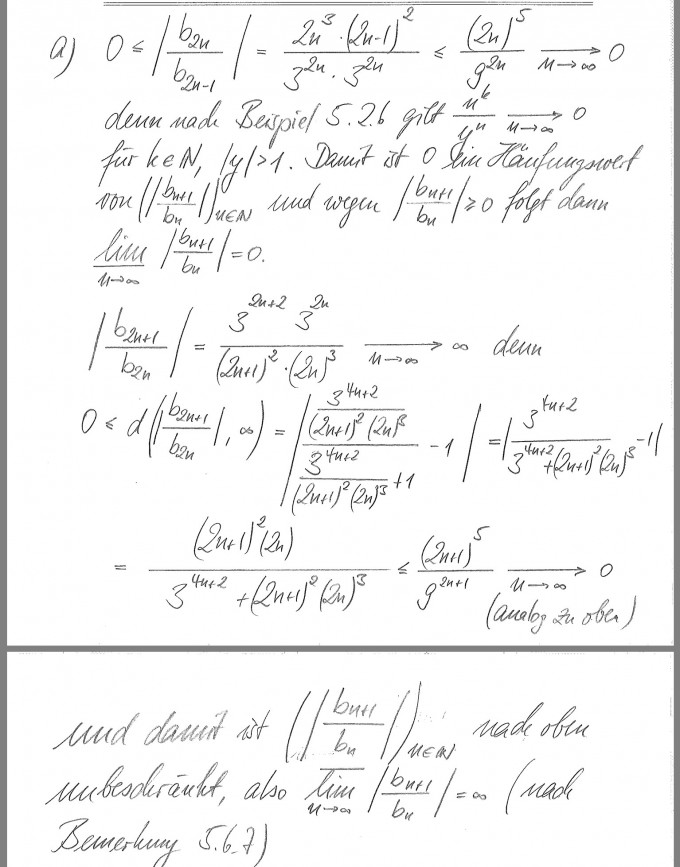 a) 0 ≤ |b_{2n}/b_{2n-1}| = 2n^3 · (2n-1)^2 / 3^{2n} · 3^{2n} ≤ (2n)^5 / 9^{2n} ⟶_{n→∞} 0
denn nach Beispiel 5.2.6 gilt n^k/y^n ⟶_{n→∞} 0
für k∈ℕ, |y|>1. Damit ist 0 ein Häufungswert
von (|b_{n+1}/b_n|)_{n∈ℕ} und wegen |b_{n+1}/b_n| ≥ 0 folgt dann
\underline{lim}_{n→∞} |b_{n+1}/b_n| = 0.
|b_{2n+1}/b_{2n}| = 3^{2n+2} 3^{2n} / (2n+1)^2 · (2n)^3 ⟶_{n→∞} ∞ denn
0 ≤ d(|b_{2n+1}/b_{2n}|, ∞) = |(3^{4n+2}/(2n+1)^2(2n)^3) / (3^{4n+2}/(2n+1)^2(2n)^3 + 1) - 1| = |3^{4n+2} / 3^{4n+2}+(2n+1)^2(2n)^3 - 1|
= (2n+1)^2(2n) / 3^{4n+2} + (2n+1)^2(2n)^3 ≤ (2n+1)^5 / 9^{2n+1} ⟶_{n→∞} 0
(analog zu oben)
und damit ist (|b_{n+1}/b_n|)_{n∈ℕ} nach oben
unbeschränkt, also \overline{lim}_{n→∞} |b_{n+1}/b_n| = ∞ (nach
Bemerkung 5.6.7)